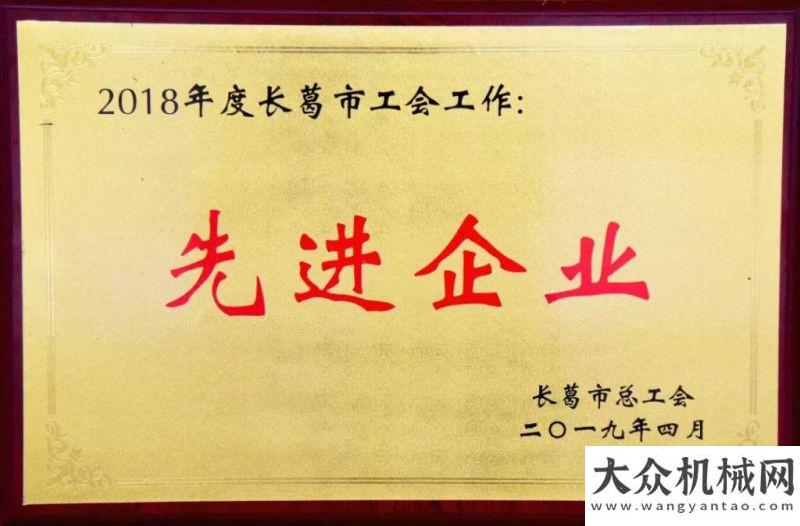 2018年度长葛市工会工作:
先进企业
长葛市总工会
二〇一九年四月
大众机械网
www.wangyantao.com